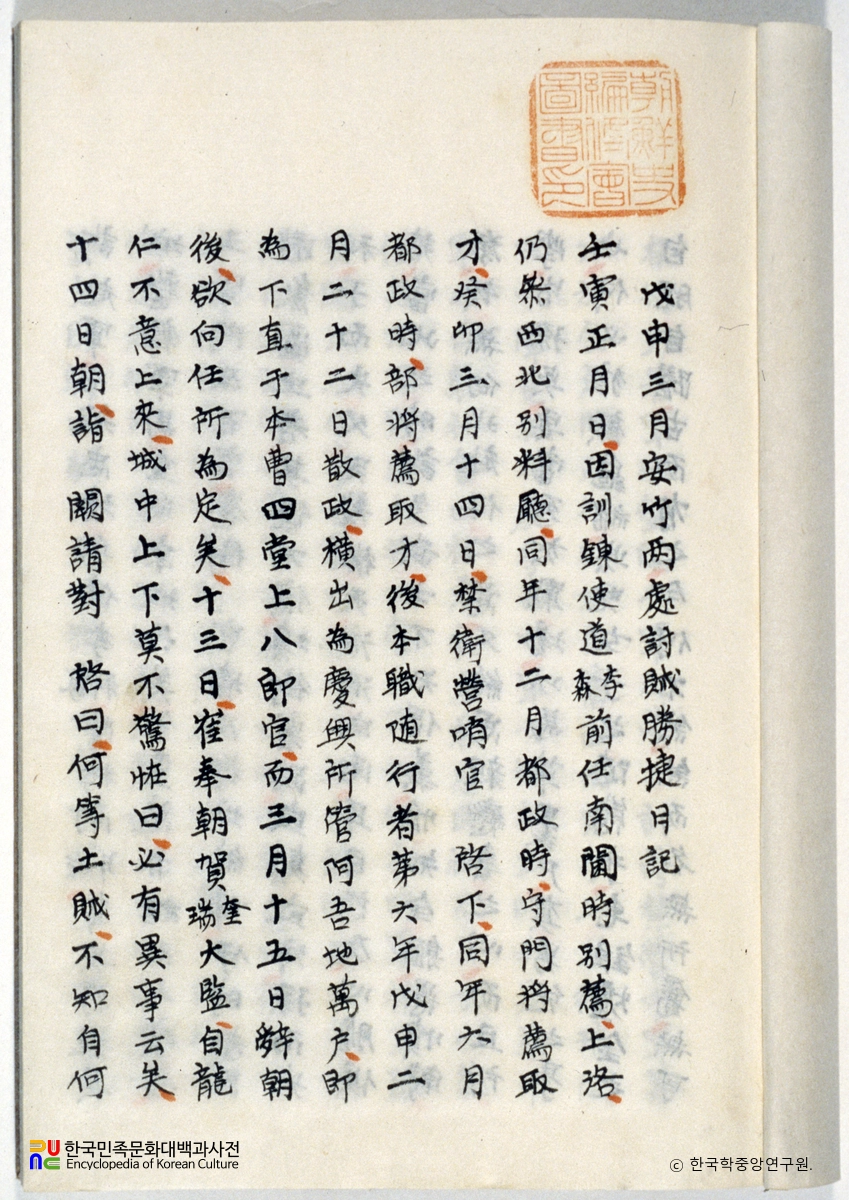 朝鮮史
編修會
圖書印
戊申三月安竹两處討賊勝捷日記
壬寅正月日因訓鍊使道李森前任南閫時別薦上洛
仍叅西北別料廳同年十二月都政時守門將薦取
才癸卯三月十四日禁衛營哨官 啓下同年六月
都政時部將薦取才後本職随行者第六年戊申二
月二十二日散政橫出為慶興所管阿吾地萬户即
為下直于本曹四堂上八郎官而三月十五日辭朝
後欲向任所為定矣十三日崔奉朝賀奎瑞大監自龍
仁不意上來城中上下莫不驚恠曰必有異事云矣
十四日朝詣 闕請對 啓曰何等土賊不知自何
한국민족문화대백과사전
Encyclopedia of Korean Culture
© 한국학중앙연구원.